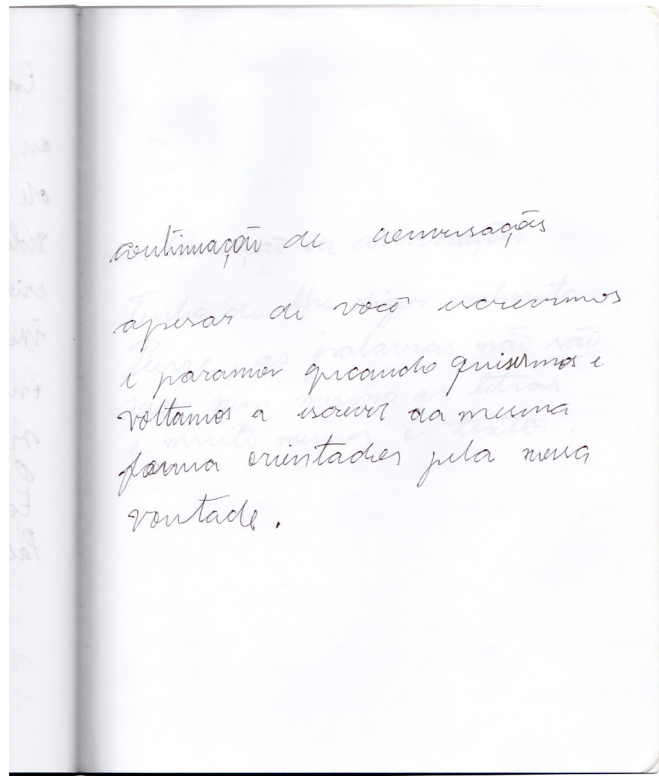 continuação de conversações
apesar de você escrevemos
e paramos quando quisermos e
voltamos a escrever da mesma
forma orientados pela nossa
vontade.